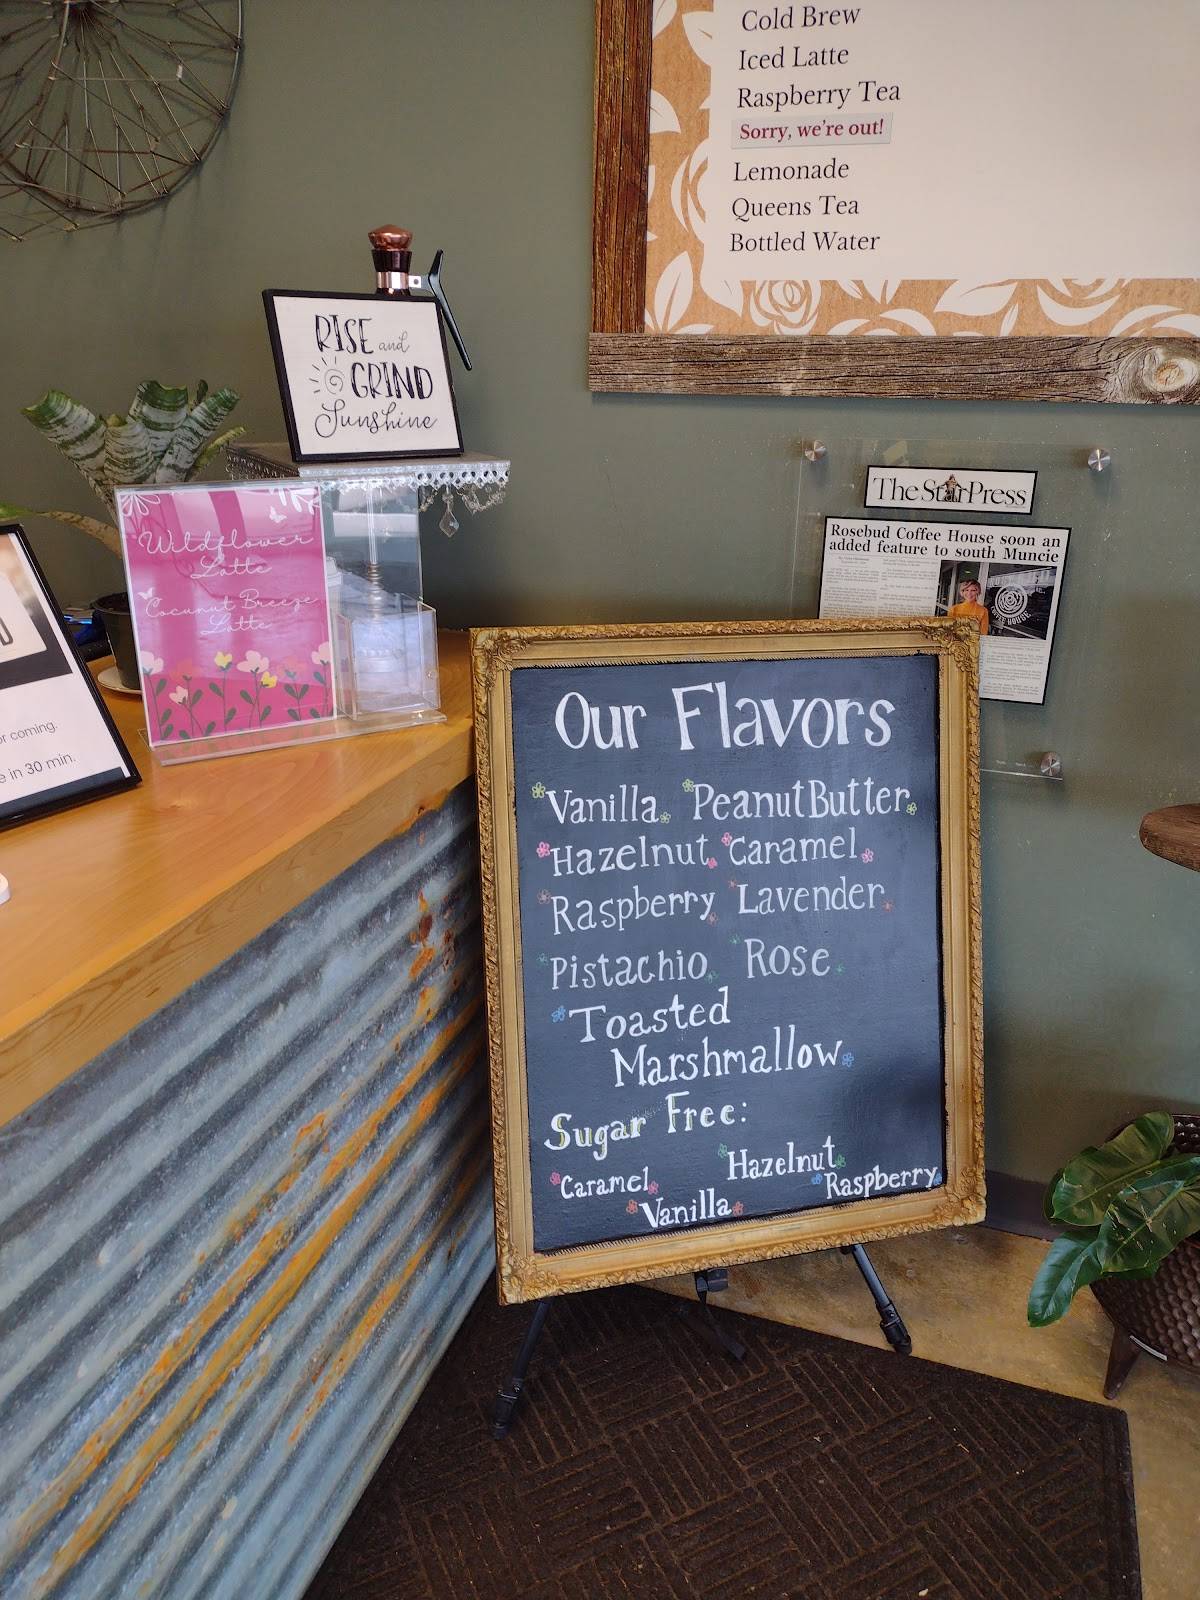 Cold Brew
Iced Latte
Raspberry Tea
Sorry, we're out!
Lemonade
Queens Tea
Bottled Water
RISE and
GRIND
Sunshine
Wildflower
Latte
Cocunut Breeze
Latte
or coming.
e in 30 min.
The StarPress
Rosebud Coffee House soon an
added feature to south Muncie
Our Flavors
Vanilla PeanutButter
Hazelnut Caramel
Raspberry Lavender
Pistachio Rose
Toasted
Marshmallow
Sugar Free:
Caramel Hazelnut
Vanilla Raspberry